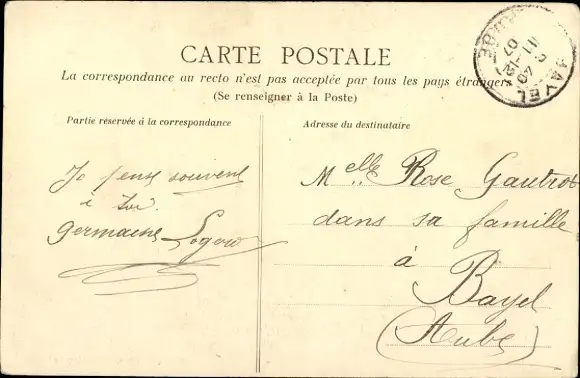 CARTE POSTALE
La correspondance au recto n'est pas acceptée par tous les pays étrangers
(Se renseigner à la Poste)
Partie réservée à la correspondance
Je pense souvent
à toi.
Germaine
Adresse du destinataire
Melle Rose Gautrot
dans sa famille
à
Bayel
(Aube)
BAYEL
AUBE